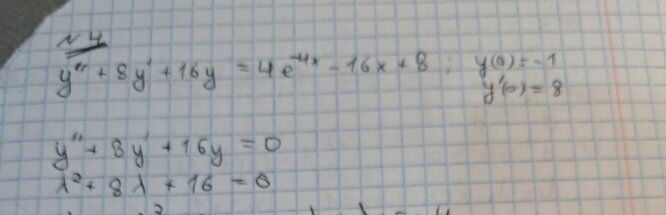 №4
y'' + 8y' + 16y = 4e^{-4x} - 16x + 8 ; y(0) = -1
y'(0) = 8
y'' + 8y' + 16y = 0
λ² + 8λ + 16 = 0